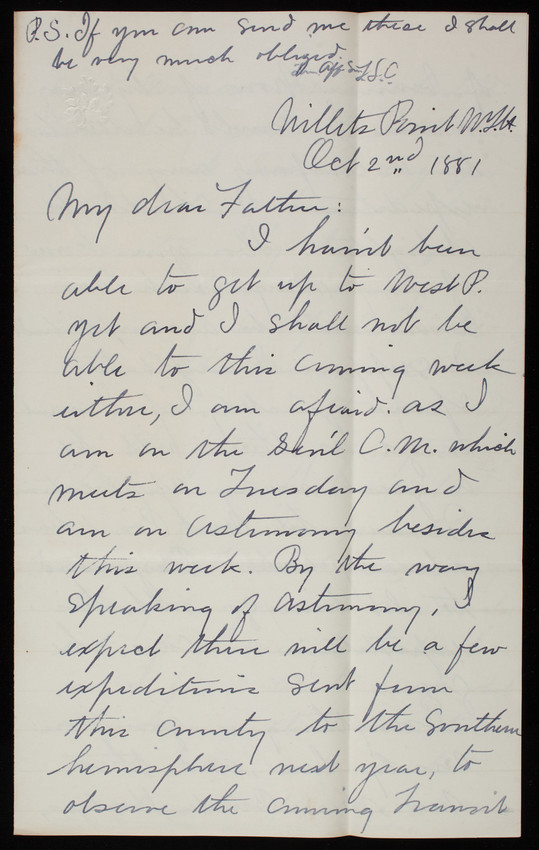 P.S. If you can send me these I shall
be very much obliged.
Aff. Son T.L.C.
Willets Point N.Y.H.
Oct 2nd 1881
My dear Father:
I hav'nt been
able to get up to West P.
yet and I shall not be
able to this coming week
either, I am afraid. as I
am on the Gen'l C.M. which
meets on Tuesday and
am on astronomy besides
this week. By the way
speaking of astronomy, I
expect there will be a few
expeditions sent from
this country to the Southern
hemisphere next year, to
observe the coming transit